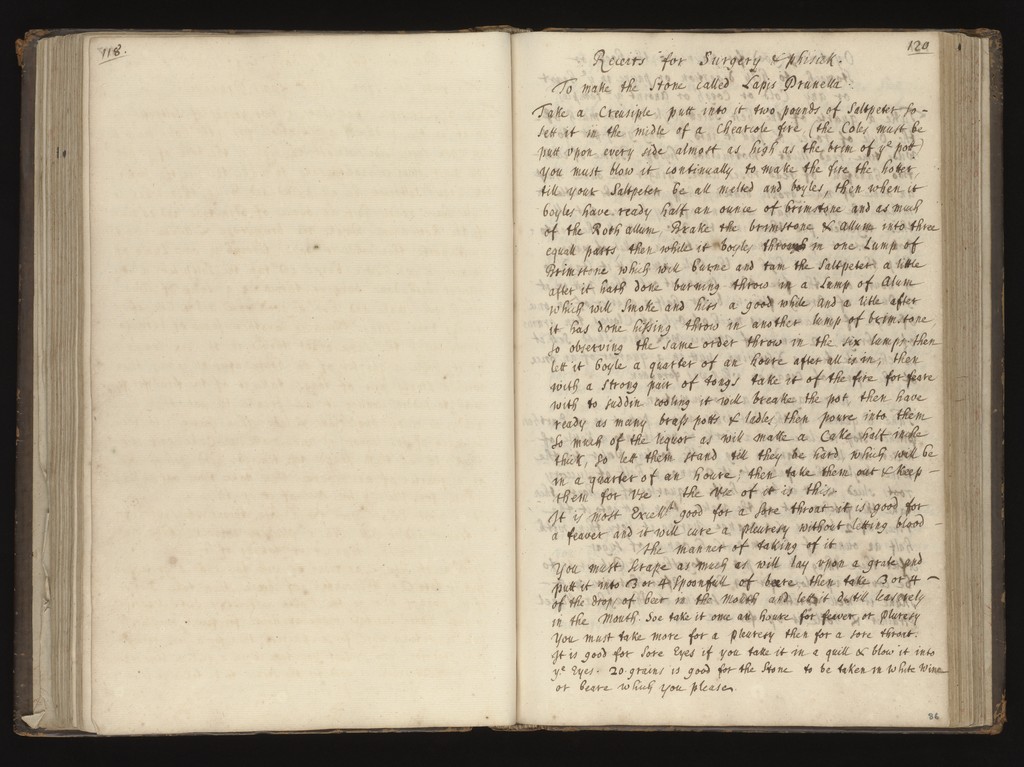 118.
120
Receits for Surgery & phisick.
To make the Stone called Lapis Prunella.
Take a Creusiple putt into it two pounds of Saltpeter so
sett it in the midle of a Chearcole fire (the Coles must be
putt upon every side almost as high as the brim of yᵉ pot)
you must blow it continually to make the fire the hotter
till your Saltpeter be all melted and boyles, then when it
boyles have ready half an ounce of brimstone and as much
of the Roth allum, Brake the brimstone & allum into three
equall parts then while it boyles throw in one Lump of
Brimstone which will burne and tarn the Saltpeter a little
after it hath done burning throw in a Lump of Alum
which will smoke and hiss a good while and a litle after
it has done hissing throw in another lump of brimstone
so observing the same order throw in the six lumps then
lett it boyle a quarter of an houre after all is in, then
with a strong pair of tongs take it of the fire for feare
with to suddin cooling it will breake the pot, then have
ready as many brass potts & ladles then poure into them
so much of the liquor as will make a Cake half inche
thick, so lett them stand till they be hard which will be
in a quarter of an houre, then take them out & keep
them for Use the Use of it is this
It is most Excellᵗ good for a sore throat it is good for
a feaver and it will cure a pleuresy without letting blood
the manner of taking of it
You must scrape as much as will lay upon a grate and
putt it into 3 or 4 spoonfull of beare then take 3 or 4
of the drops of beer in the Mouth and lett it distill leasurely
in the Mouth. Soe take it once an houre for feaver, or pluresy
You must take more for a pleuresy then for a sore throat.
It is good for sore Eyes if you take it in a quill & blow it into
yᵉ Eyes. 20 grains is good for the Stone to be taken in white wine
or beare which you please.
86